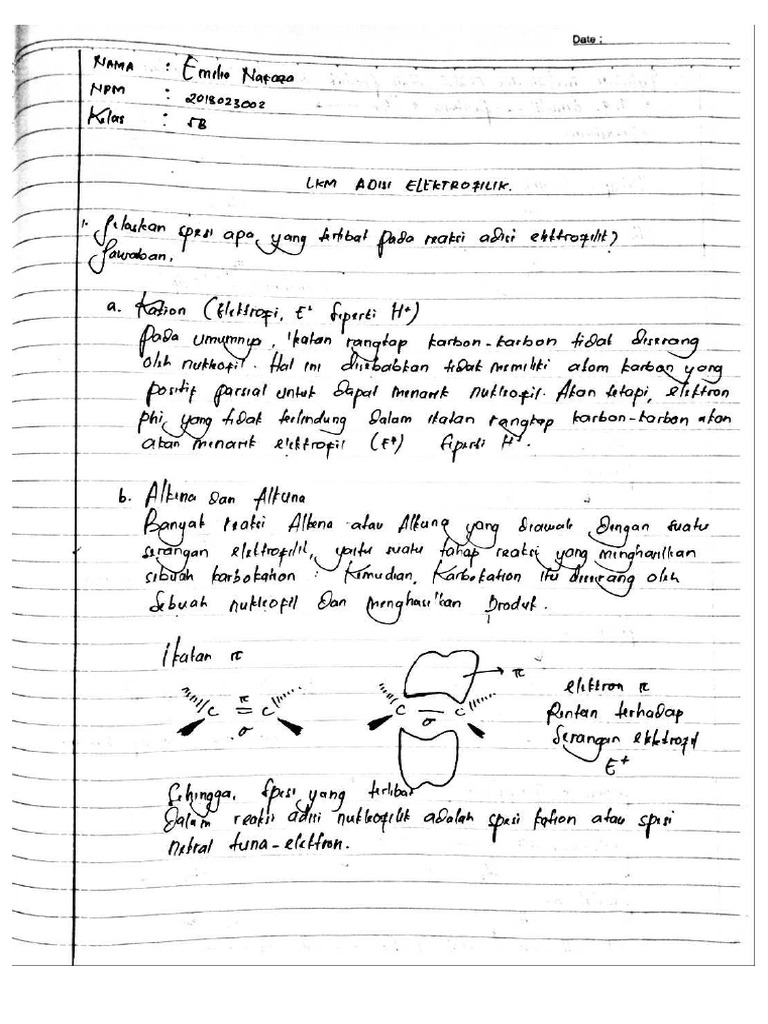 Date :
NAMA : Emilio Nafozo
NPM : 2018023002
Kelas : 5B
LKM ADISI ELEKTROFILIK.
1. Jelaskan spesi apa yang terlibat pada reaksi adisi elektrofilik?
Jawaban,
a. Kation (Elektrofi, E⁺ seperti H⁺)
Pada umumnya, ikatan rangkap karbon-karbon tidak diserang
oleh nukleofil. Hal ini disebabkan tidak memiliki atom karbon yang
positif parsial untuk dapat menarik nukleofil. Akan tetapi, elektron
phi, yang tidak terlindung dalam ikatan rangkap karbon-karbon akan
akan menarik elektrofil (E⁺) seperti H⁺.
b. Alkena dan Alkuna
Banyak reaksi Alkena atau Alkuna yang diawali dengan suatu
serangan elektrofilik, yaitu suatu tahap reaksi yang menghasilkan
sebuah karbokation : Kemudian, Karbokation itu diserang oleh
sebuah nukleofil dan menghasilkan produk.
Ikatan π
π
C = C
σ
π
C – C
σ
elektron π
Rentan terhadap
serangan elektrofil
E⁺
Sehingga, spesi yang terlibat
dalam reaksi adisi nukleofilik adalah spesi kation atau spesi
netral tuna-elektron.